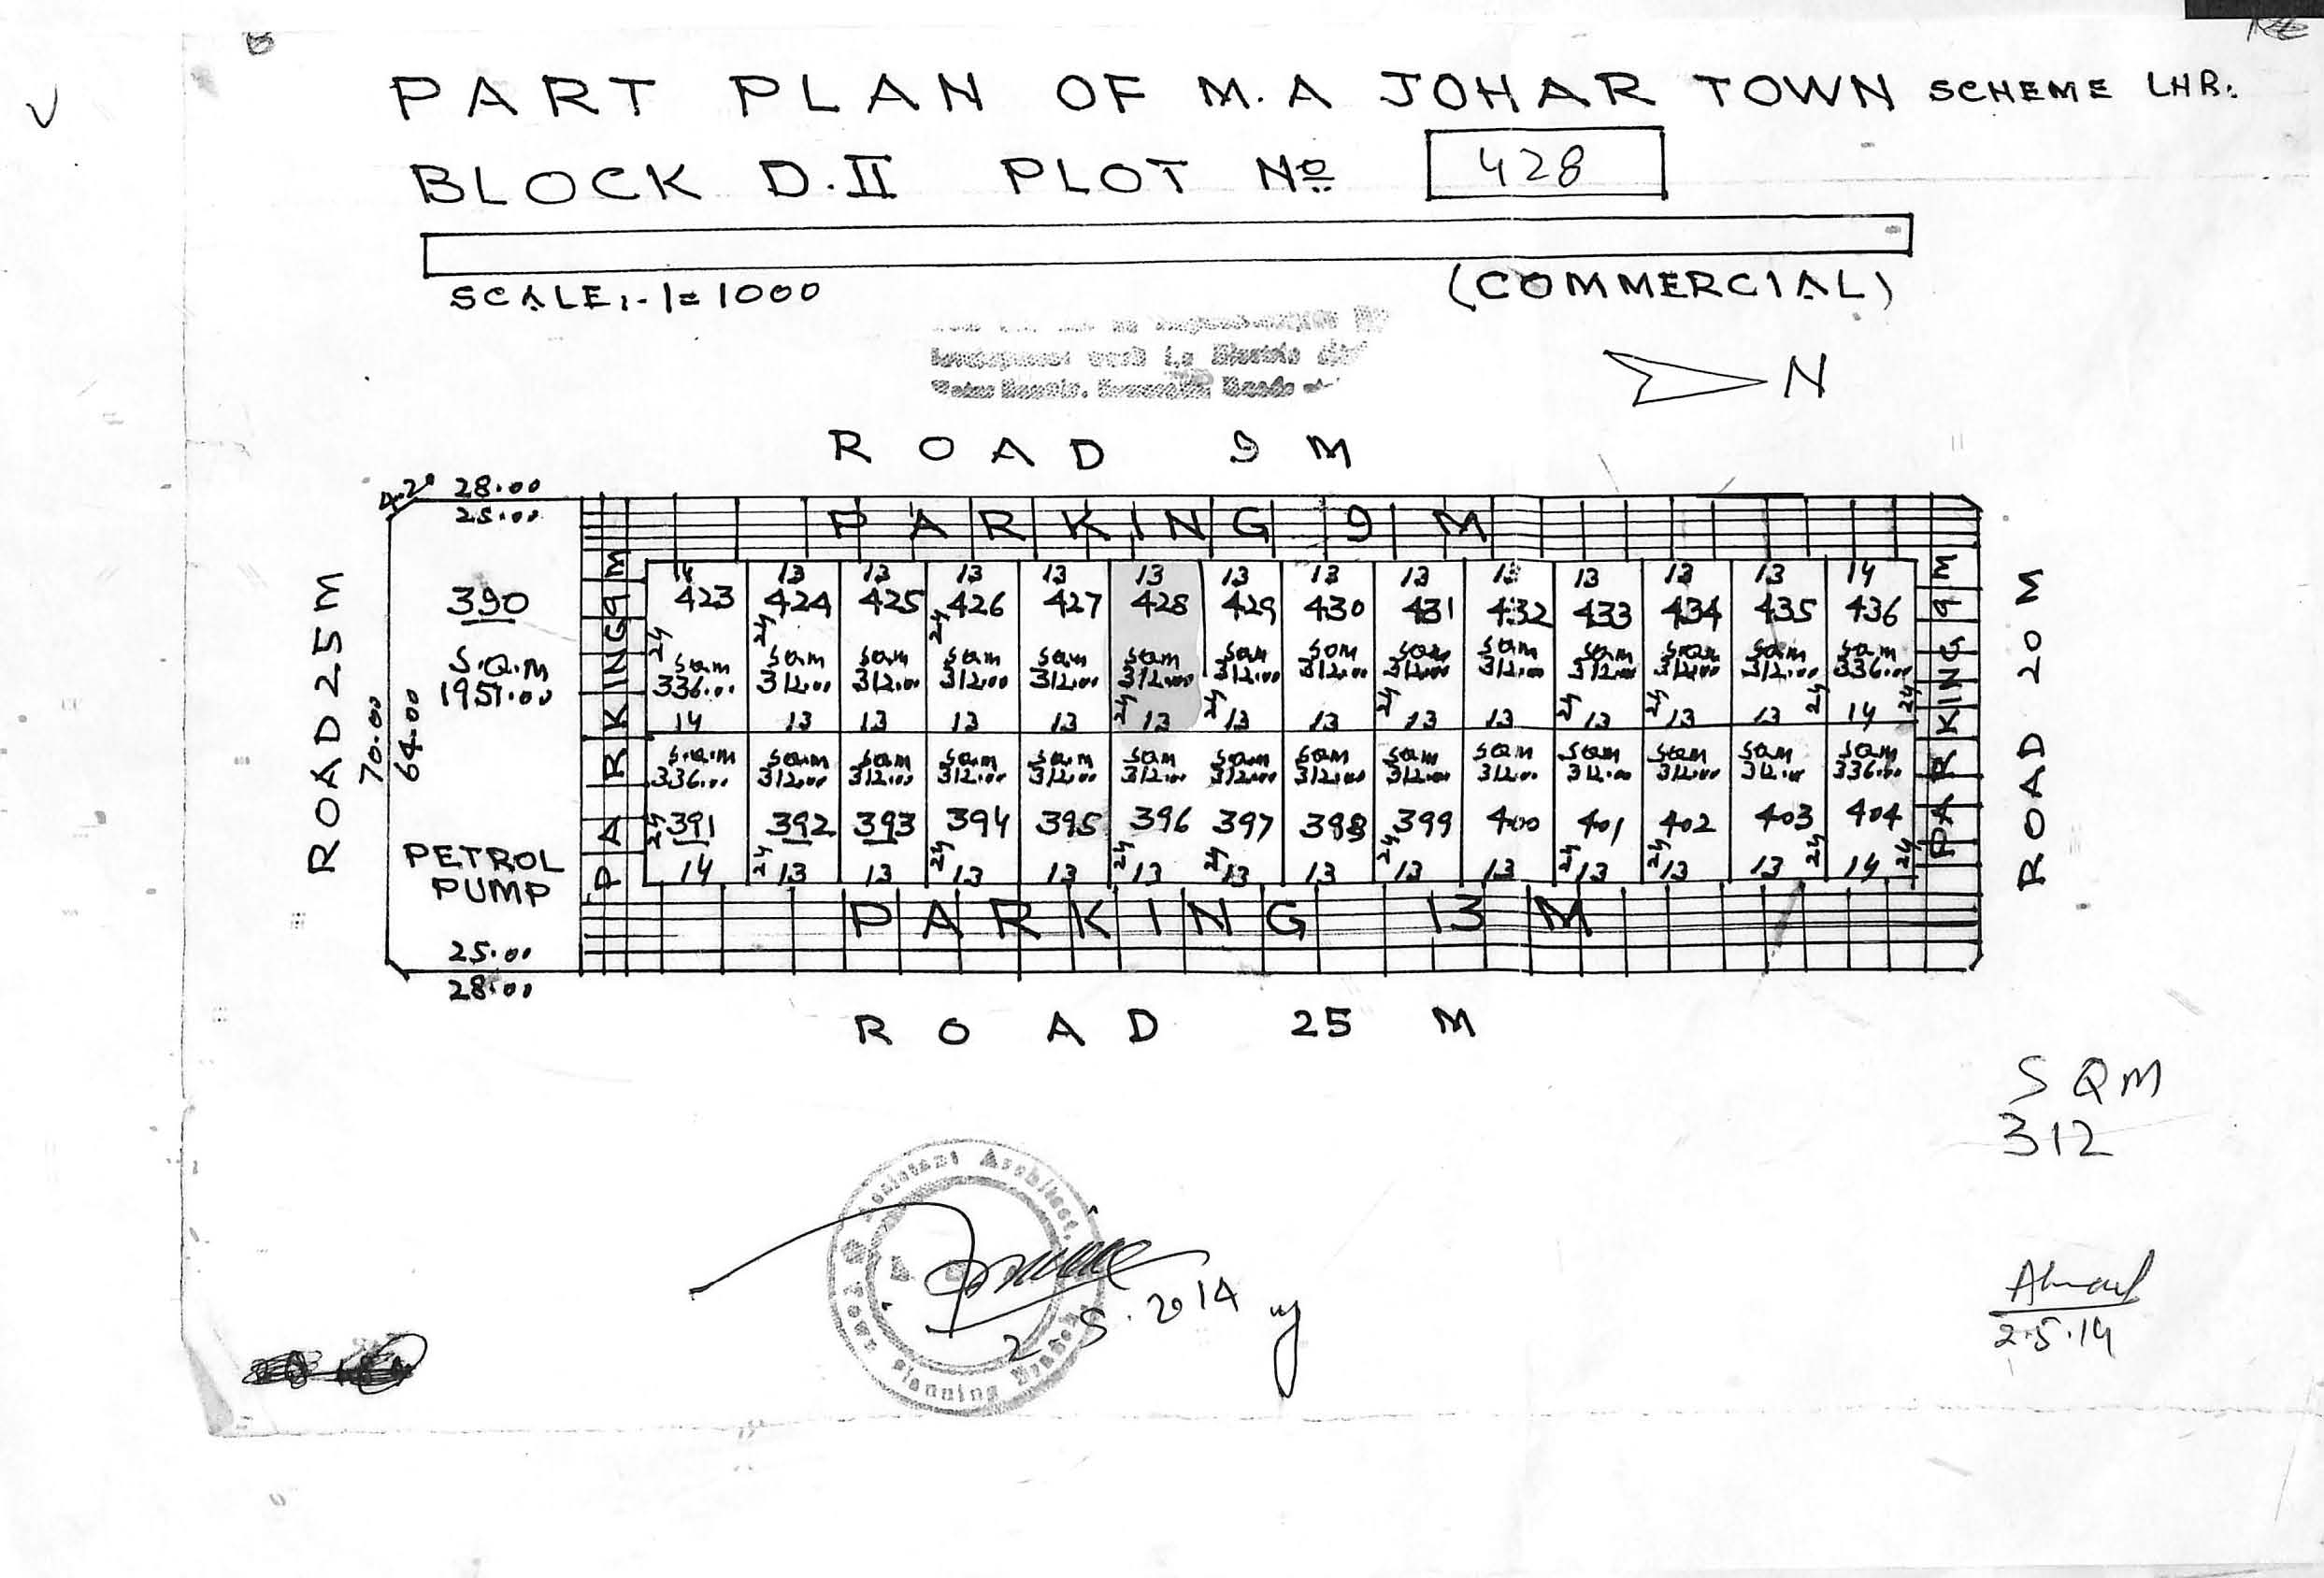 PART PLAN OF M.A JOHAR TOWN SCHEME LHR.
BLOCK D.II PLOT No 428
SCALE:-1=1000
(COMMERCIAL)
N
ROAD 9 M
4.20 28.00
25.00
PARKING 9 M
ROAD 25 M
70.00
64.00
390
S.Q.M
1951.00
PETROL
PUMP
25.00
28.00
PARKING 9 M
14 13 13 13 13 13 13 13 13 13 13 13 13 14
423 424 425 426 427 428 429 430 431 432 433 434 435 436
24 24 24
SQM SQM SQM SQM SQM SQM SQM SQM SQM SQM SQM SQM SQM SQM
336.00 312.00 312.00 312.00 312.00 312.00 312.00 312.00 312.00 312.00 312.00 312.00 312.00 336.00
24 24 24 24 24 24 24
14 13 13 13 13 13 13 13 13 13 13 13 13 14
S.Q.M SQM SQM SQM SQM SQM SQM SQM SQM SQM SQM SQM SQM SQM
336.00 312.00 312.00 312.00 312.00 312.00 312.00 312.00 312.00 312.00 312.00 312.00 312.00 336.00
391 392 393 394 395 396 397 398 399 400 401 402 403 404
24 24 24 24 24 24 24 24 24 24
14 13 13 13 13 13 13 13 13 13 13 13 13 14
PARKING 9 M
ROAD 20 M
PARKING 13 M
ROAD 25 M
SQM
312
Assistant Architect
Town Planning
2.5.2014
Ahmad
2.5.14